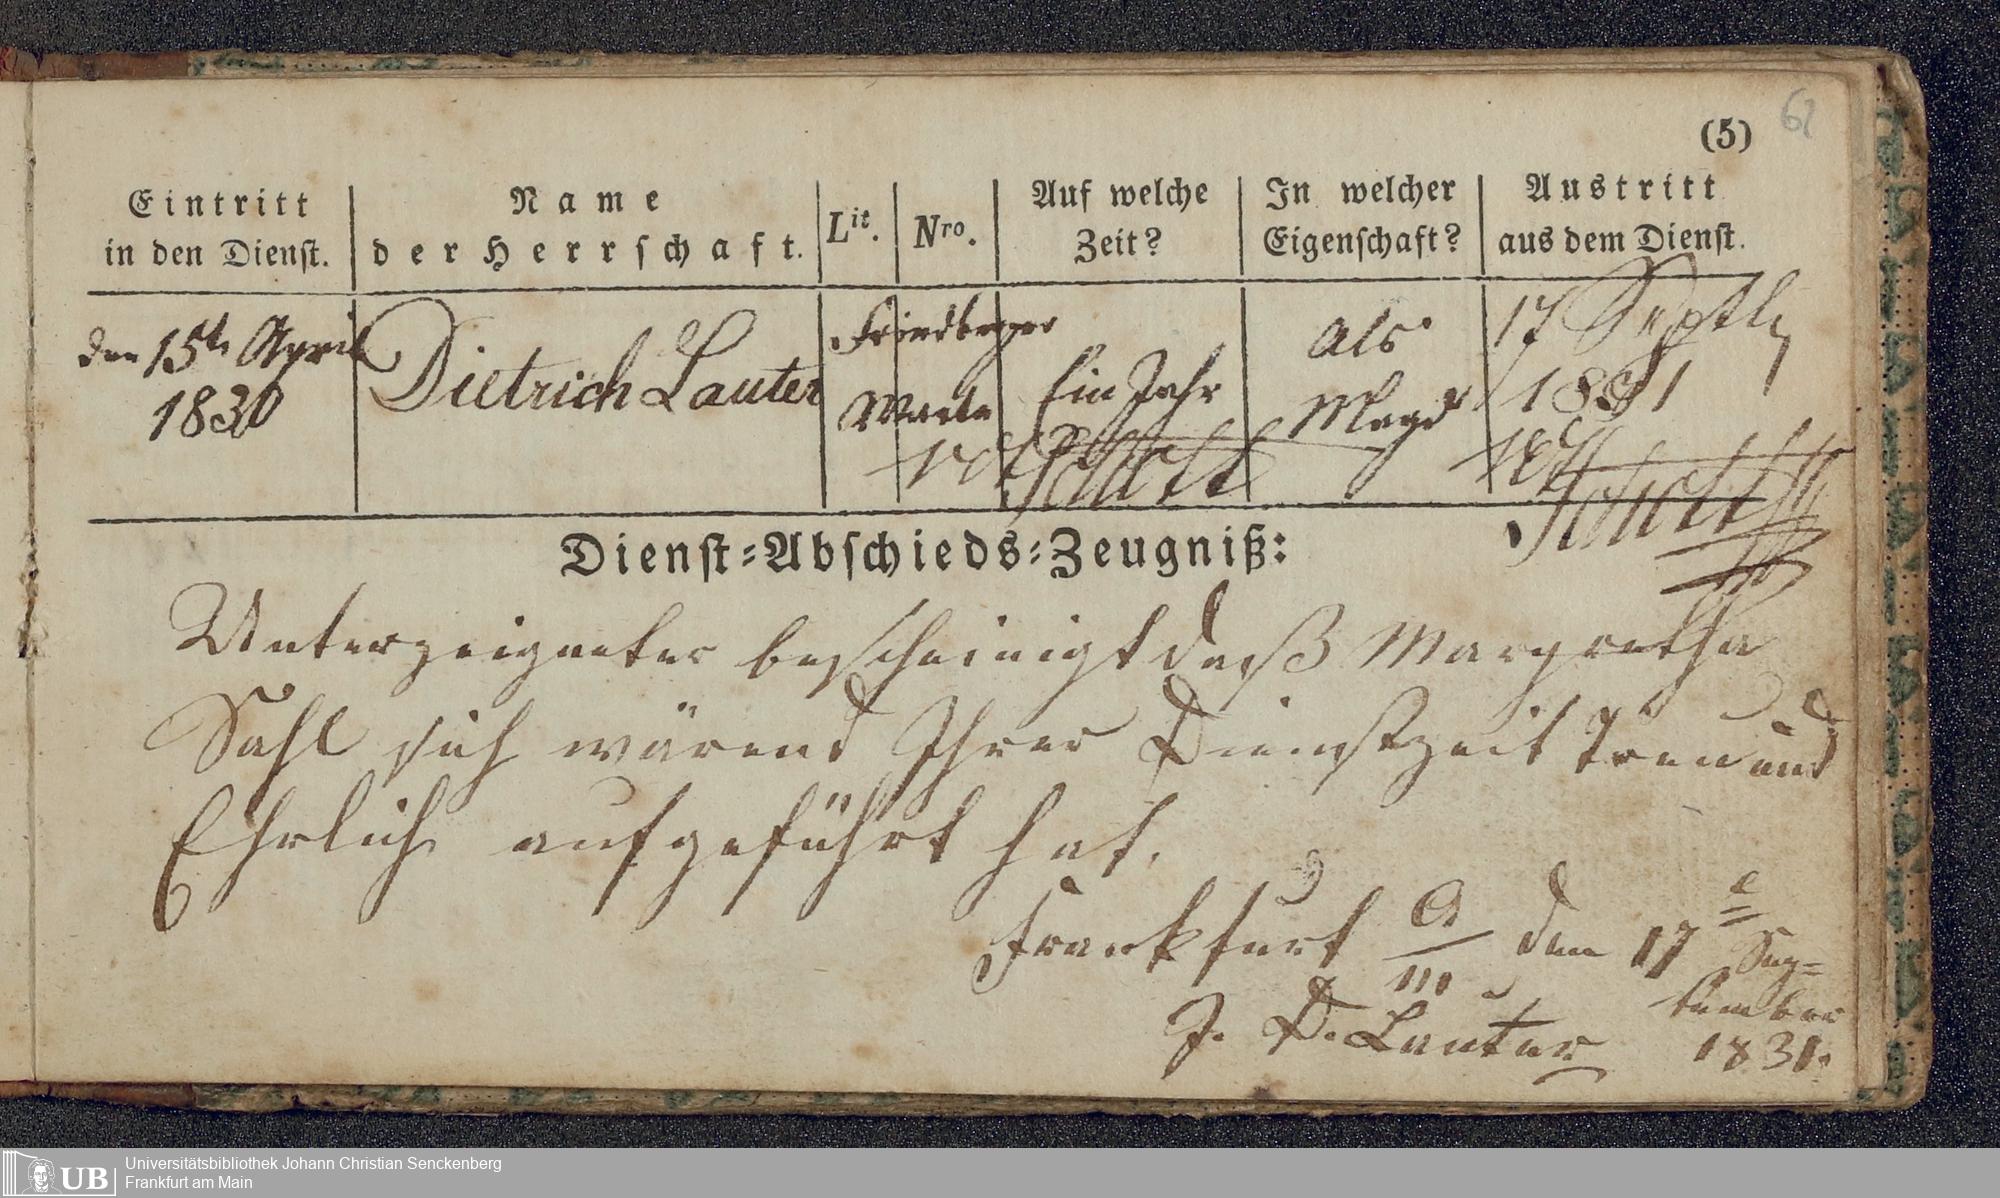 (5)
62
Eintritt in den Dienst.
Name der Herrschaft.
Lit.
Nro.
Auf welche Zeit?
In welcher Eigenschaft?
Austritt aus dem Dienst.
den 15te April
1830
Dietrich Lauter
Friedberger
Warte
Ein Jahr
Als
Magd
17 Septb
1831
Dienst-Abschieds-Zeugniß:
Unterzeigneter bescheinigt daß Margretha
Sahl sich wärend Ihrer Dienstzeit Treu und
Ehrlich aufgeführt hat.
Frankfurt a/m den 17e Sep=
tember
J. D. Lauter 1831.
UB
Universitätsbibliothek Johann Christian Senckenberg
Frankfurt am Main